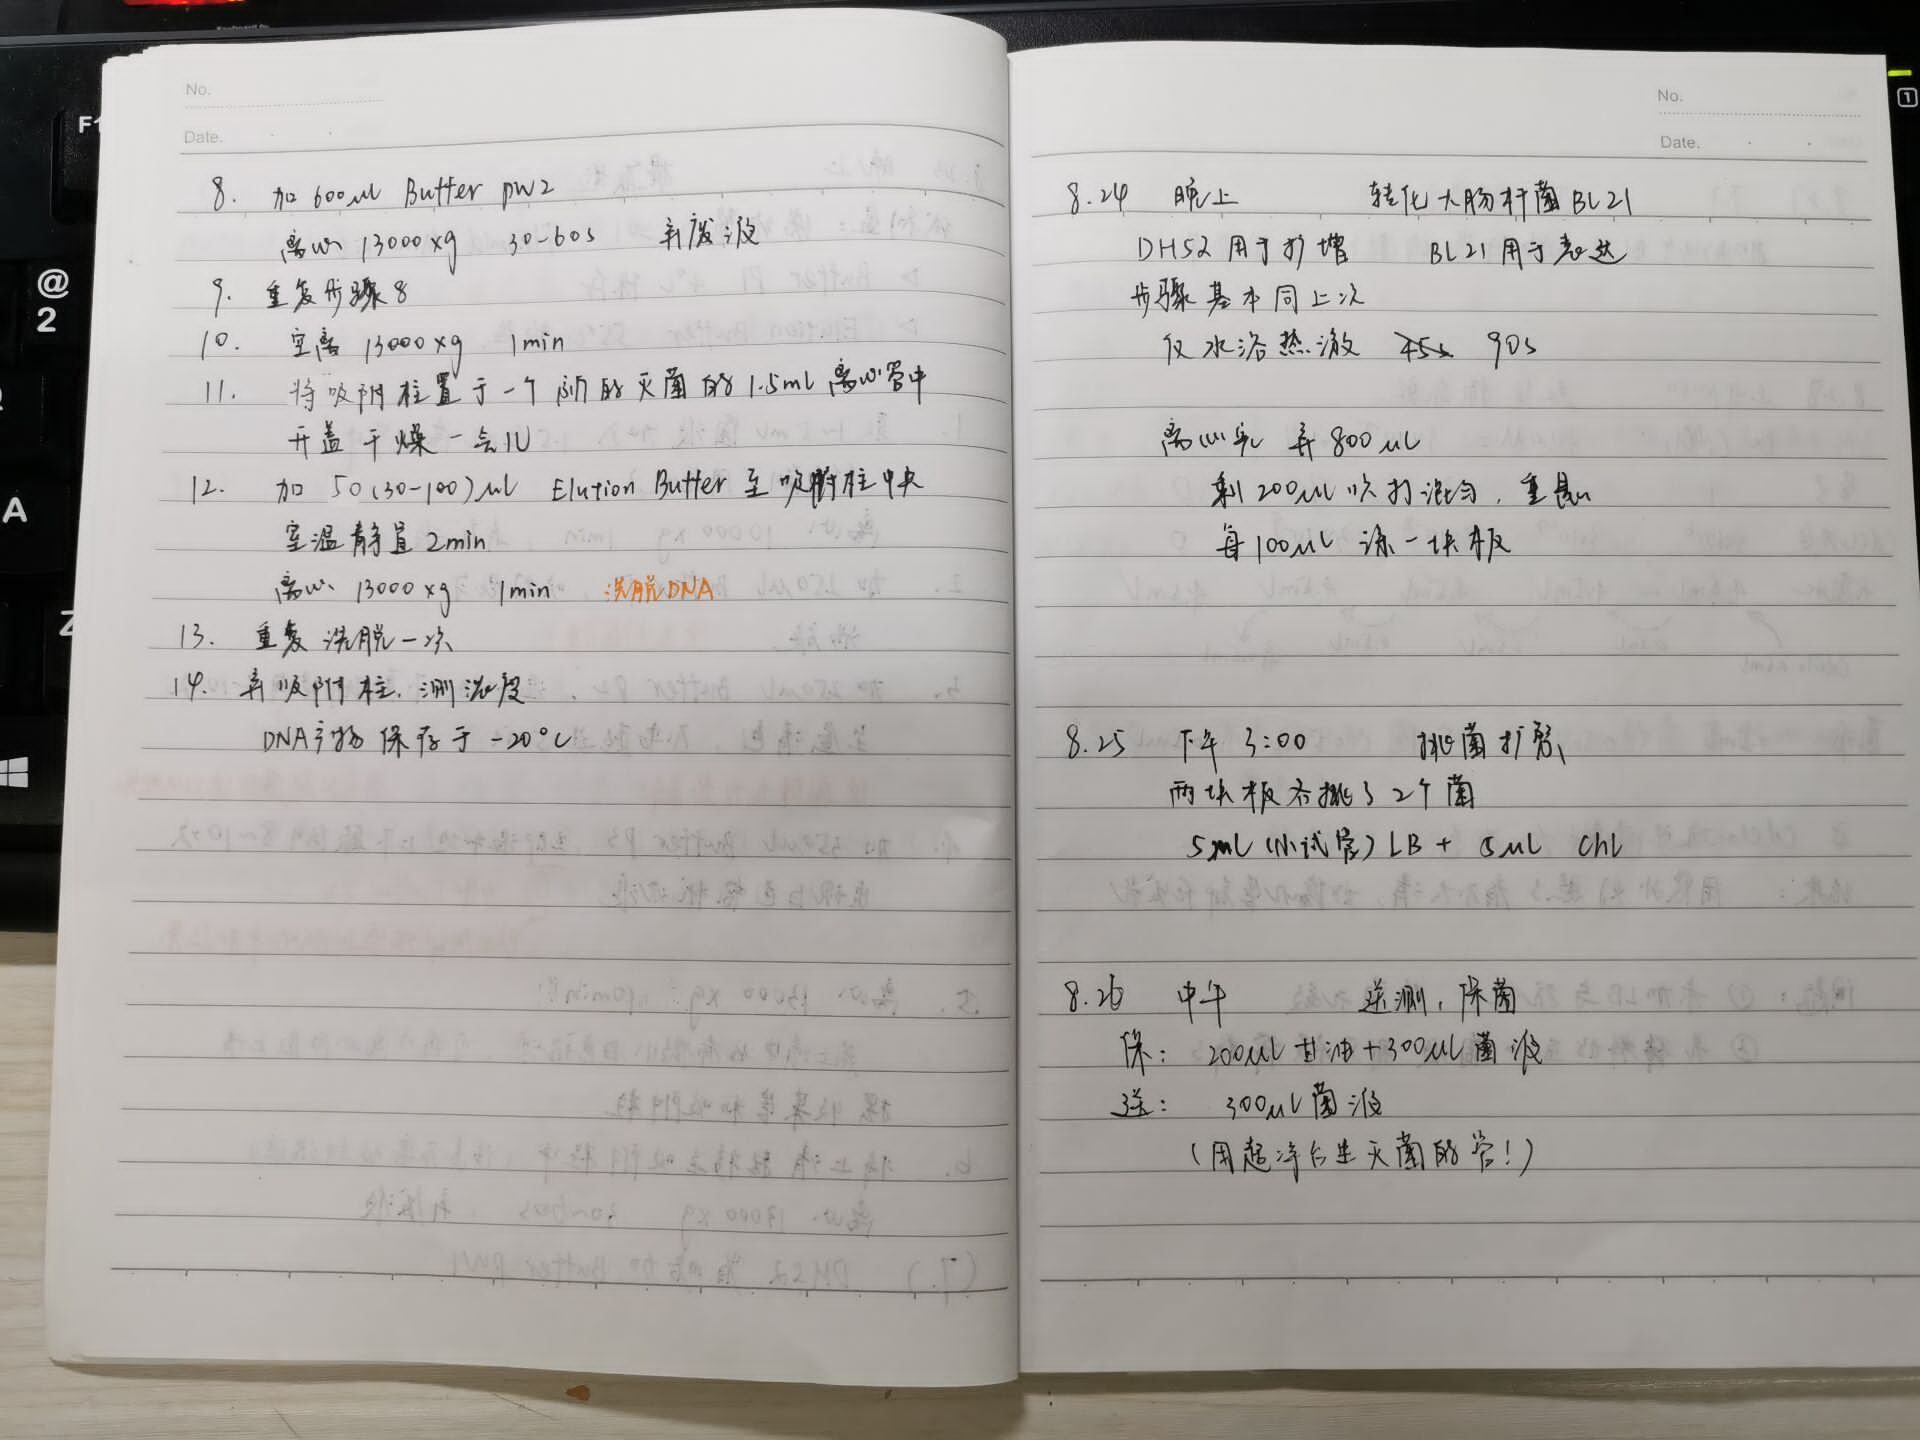 No.
Date.
8. 加600μl Buffer PW2
离心 13000xg 30-60s 弃废液
9. 重复步骤8
10. 空离 13000xg 1min
11. 将吸附柱置于一个新的灭菌的1.5mL离心管中
开盖干燥一会儿
12. 加 50(30-100)μL Elution Buffer 至吸附柱中央
室温静置2min
离心 13000xg 1min 洗脱DNA
13. 重复洗脱一次
14. 弃吸附柱,测浓度
DNA产物保存于-20°C
No.
Date.
8.24 晚上 转化大肠杆菌BL21
DH5α用于扩增 BL21用于表达
步骤基本同上次
仅水浴热激 45s 90s
离心完 弃800μL
剩200μL吹打混匀,重悬
每100μL 涂一块板
8.25 下午 3:00 挑菌扩繁
两块板各挑了2个菌
5mL(小试管)LB + 5μL Chl
8.26 中午 送测,保菌
保: 200μL甘油+300μL菌液
送: 300μL菌液
(用超净台里灭菌的管!)
F1
@
2
A
Z
1